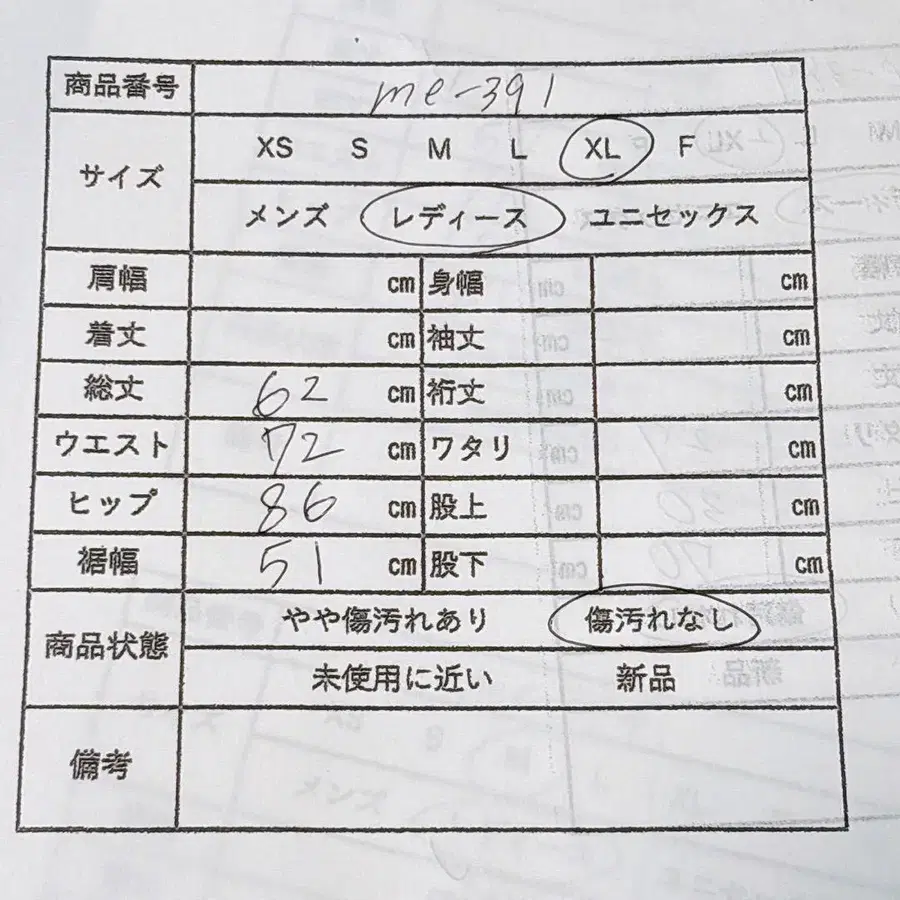 商品番号 me-391
サイズ XS S M L XL F
メンズ レディース ユニセックス
肩幅 cm 身幅 cm
着丈 cm 袖丈 cm
総丈 62 cm 裄丈 cm
ウエスト 72 cm ワタリ cm
ヒップ 86 cm 股上 cm
裾幅 51 cm 股下 cm
商品状態 やや傷汚れあり 傷汚れなし
未使用に近い 新品
備考